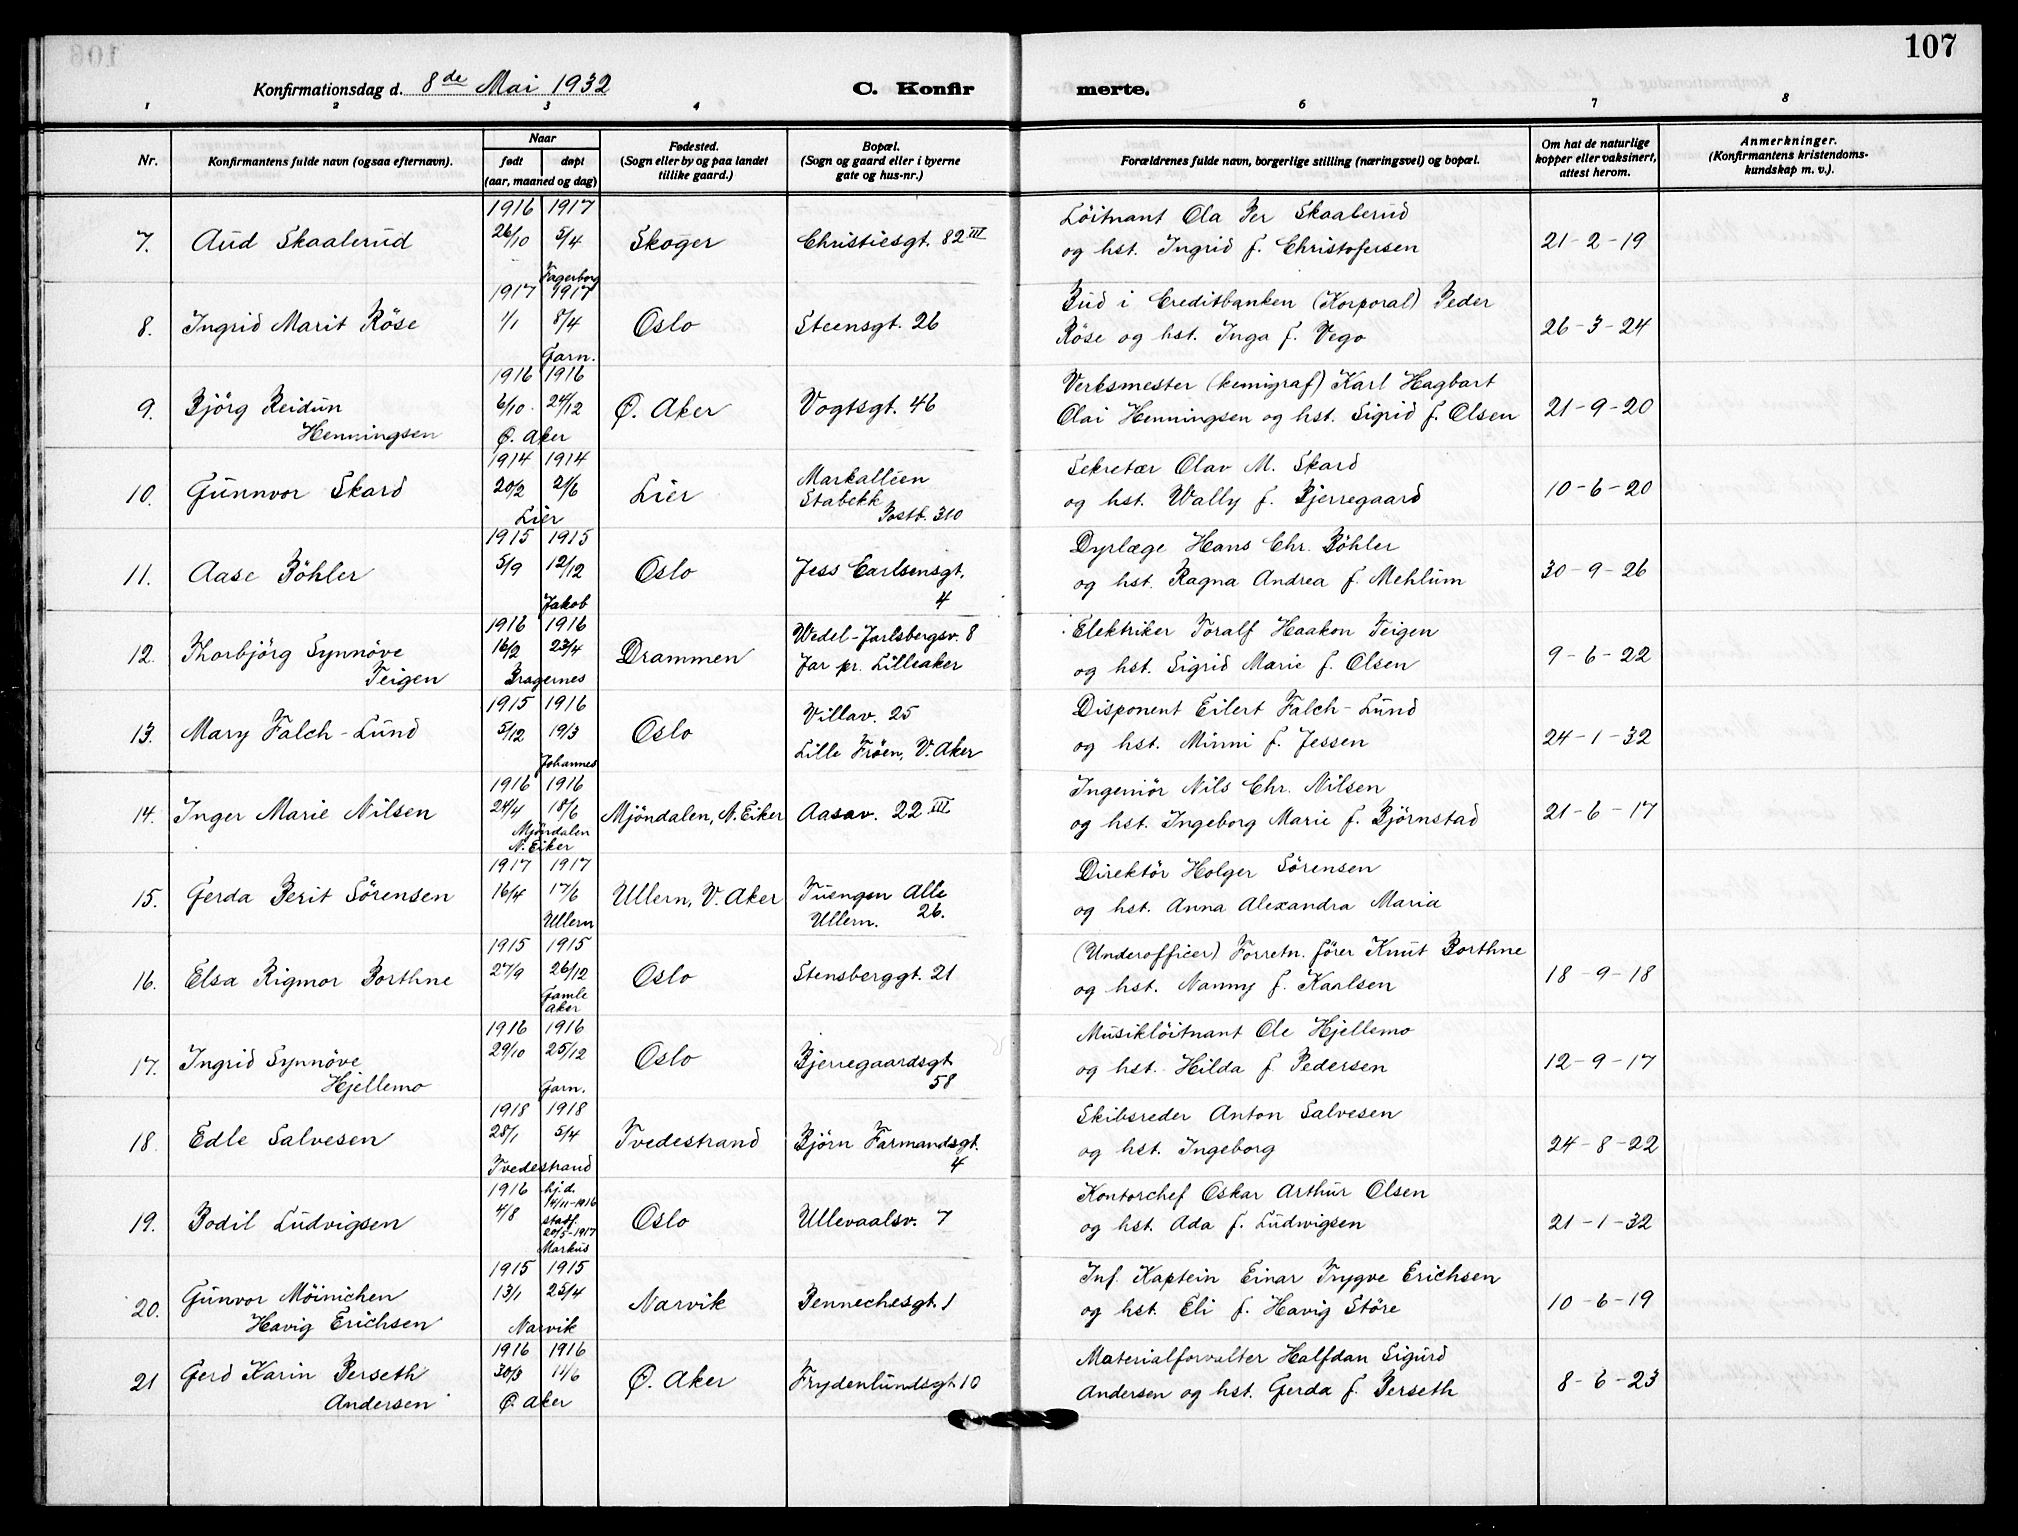 107
Konfirmationsdag d. 8de Mai 1932 C. Konfirmerte.
1 2 3 4 6 7 8
Nr.
Konfirmantens fulde navn (ogsaa efternavn).
Naar
født døpt
(aar, maaned og dag)
Fødested.
(Sogn eller by og paa landet
tillike gaard.)
Bopæl.
(Sogn og gaard eller i byerne
gate og hus-nr.)
Forældrenes fulde navn, borgerlige stilling (næringsvei) og bopæl.
Om hat de naturlige
kopper eller vaksinert,
attest herom.
Anmerkninger.
(Konfirmantens kristendoms-
kundskap m. v.).
1916 1917 Löitnant Ola Per Skaalerud
7. Aud Skaalerud 26/10 5/4 Skoger Christiesgt. 82 III og hst. Ingrid f. Christofersen 21-2-19
Fagerborg
1917 1917 Bud i Creditbanken (Korporal) Peder
8. Ingrid Marit Röse 1/1 8/4 Oslo Steensgt. 26 Röse og hst. Inga f. Vego 26-3-24
Garn.
1916 1916 Verksmester (kemigraf) Karl Hagbart
9. Björg Reidun 6/10 24/12 Ø. Aker Vogtsgt. 46 Olai Henningsen og hst. Sigrid f. Olsen 21-9-20
Henningsen Ø. Aker
1914 1914 Markalléen Sekretær Olav M. Skard
10. Gunnvor Skard 20/2 21/6 Lier Stabekk og hst. Wally f. Bjerregaard 10-6-20
Lier Postb. 310
1915 1915 Dyrlæge Hans Chr. Böhler
11. Aase Böhler 5/9 12/12 Oslo Jess Carlsensgt. og hst. Ragna Andrea f. Mehlum 30-9-26
Jakob 4
1916 1916 Wedel-Jarlsbergsv. 8 Elektriker Toralf Haakon Teigen
12. Thorbjörg Synnöve 16/2 23/4 Drammen Jar pr. Lilleaker og hst. Sigrid Marie f. Olsen 9-6-22
Teigen Bragernes
1915 1916 Villav. 25 Disponent Eilert Falch-Lund
13. Mary Falch-Lund 5/12 19/3 Oslo Lille Fröen, V. Aker og hst. Minni f. Jessen 24-1-32
Johannes
1916 1916 Ingeniör Nils Chr. Nilsen
14. Inger Marie Nilsen 24/4 18/6 Mjöndalen, N. Eiker Aasav. 22 III og hst. Ingeborg Marie f. Björnstad 21-6-17
Mjöndalen
N. Eiker
1917 1917 Direktör Holger Sörensen
15. Gerda Berit Sörensen 16/4 17/6 Ullern, V. Aker Tuengen Alle og hst. Anna Alexandra Maria
Ullern Ullern. 26.
1915 1915 (Underofficer) Forretn. förer Knut Borthne
16. Elsa Rigmor Borthne 27/9 26/12 Oslo Stensberggt. 21 og hst. Nanny f. Karlsen 18-9-18
Gamle
Aker
1916 1916 Musiklöitnant Ole Hjellemo
17. Ingrid Synnöve 29/10 25/12 Oslo Bjerregaardsgt. og hst. Hilda f. Pedersen 12-9-17
Hjellemo Garn. 58
1918 1918 Skibsreder Anton Salvesen
18. Edle Salvesen 28/1 5/4 Tvedestrand Björn Farmandsgt. og hst. Ingeborg 24-8-22
Tvedestrand 4
1916 hj.d. Kontorchef Oskar Arthur Olsen
14/11-1916
19. Bodil Ludvigsen 4/8 stadf. Oslo Ullevaalsv. 7 og hst. Ada f. Ludwigsen 21-1-32
20/5-1917
Markus
1915 1915 Inf. Kaptein Einar Trygve Erichsen
20. Gunvor Möinichen 13/1 25/4 Narvik Bennechesgt. 1 og hst. Eli f. Havig Störe 10-6-19
Havig Erichsen Narvik
1916 1916 Materialforvalter Halfdan Sigurd
21 Gerd Karin Berseth 30/3 11/6 Ø. Aker Frydenlundsgt. 10 Andersen og hst. Gerda f. Berseth 8-6-23
Andersen Ø. Aker